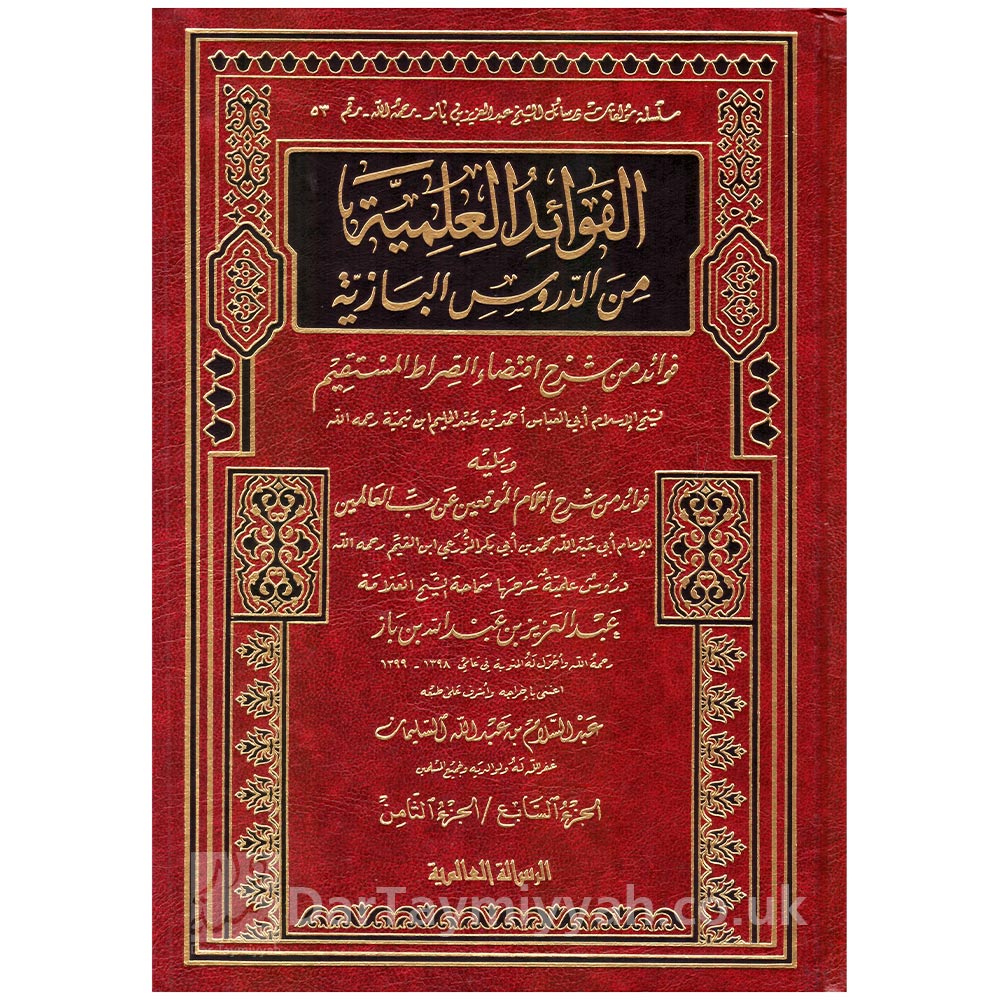 سلسلة مؤلفات ورسائل الشيخ عبد العزيز بن باز - رحمه الله - رقم ٥٣
الفَوائِدُ العِلمِيَّة
مِنَ الدّروسِ البَازيّة
فوائد من شرح اقتضاء الصراط المستقيم
لشيخ الإسلام أبي العباس أحمد بن عبد الحليم ابن تيمية رحمه الله
ويليه
فوائد من شرح إعلام الموقعين عن رب العالمين
للإمام أبي عبد الله محمد بن أبي بكر الزرعي ابن القيم رحمه الله
دروس علمية شرحها سماحة الشيخ العلامة
عبد العزيز بن عبد الله بن باز
رحمه الله وأجزل له المثوبة في عامي ١٣٩٨ - ١٣٩٩
اعتنى بإخراجه وأشرف على طبعه
عبد السلام بن عبد الله السليمان
غفر الله له ولوالديه وجميع المسلمين
الجزء السابع / الجزء الثامن
الرسالة العالمية
DarTaymiyyah.co.uk
Dar Taymiyyah